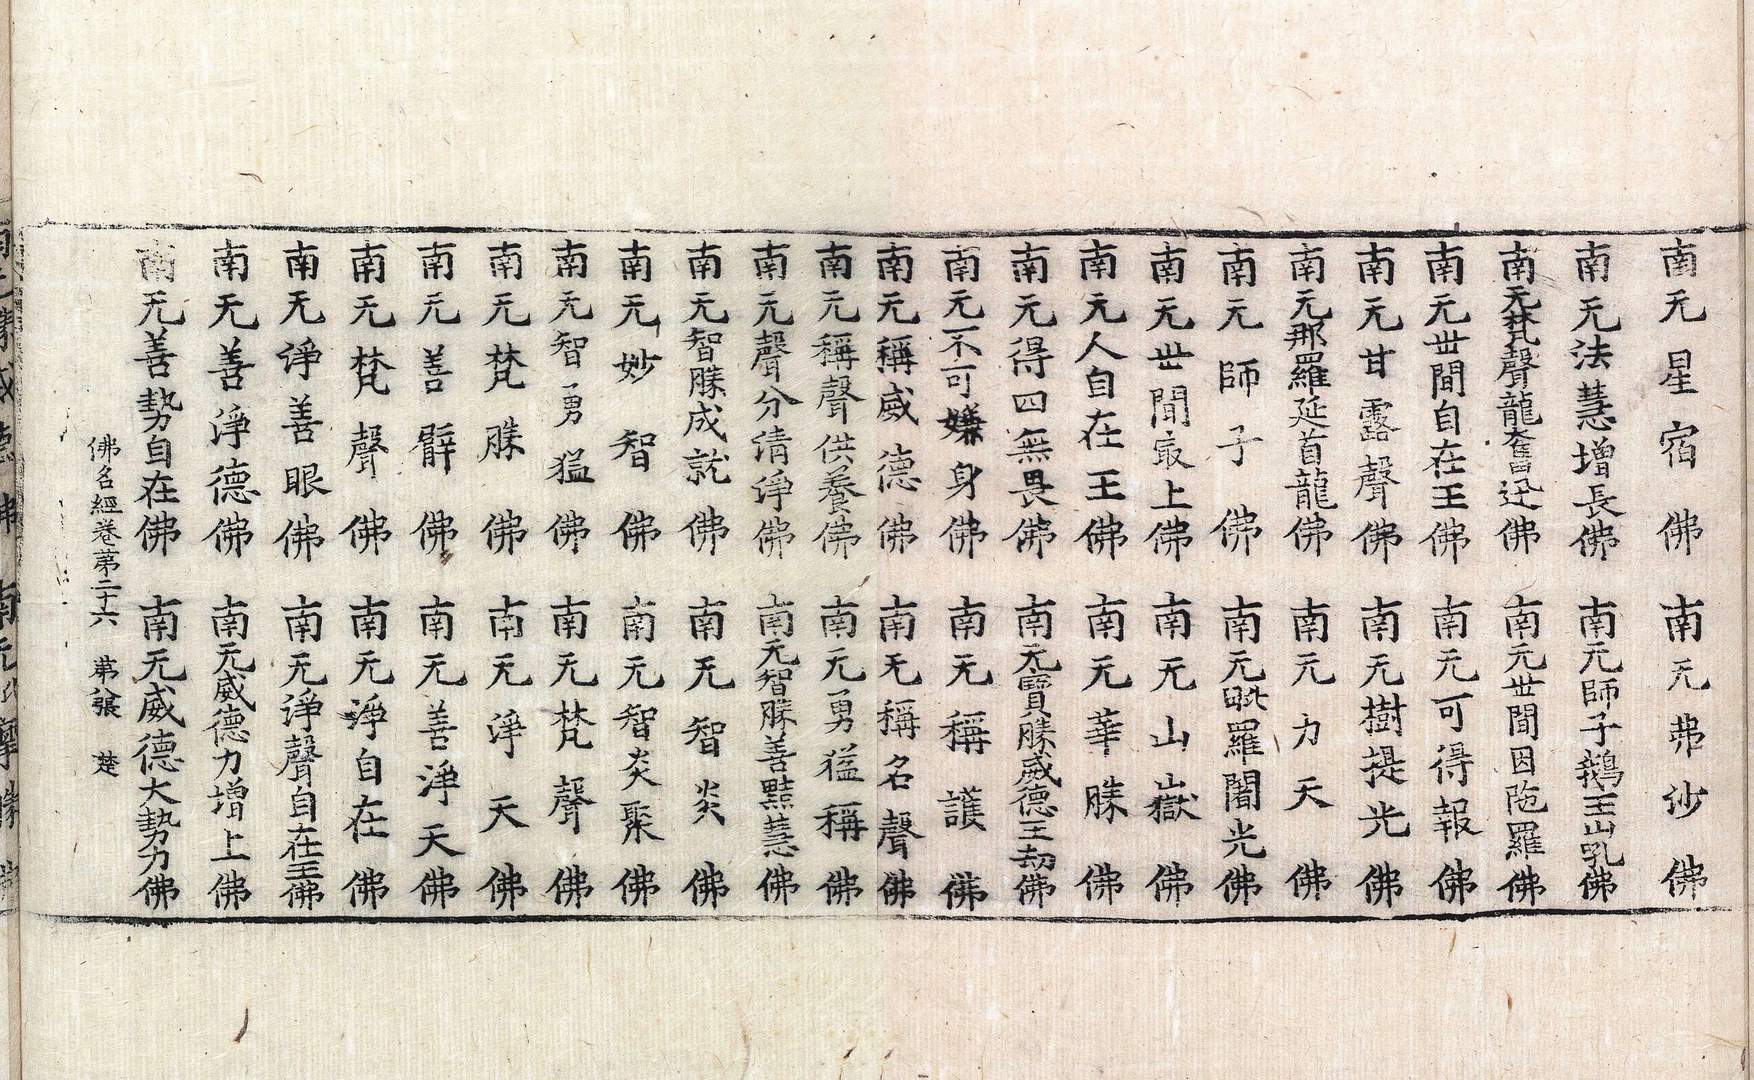 南无星宿佛　南无弗沙佛
南无法慧增長佛　南无師子鵝王山吼佛
南无梵聲龍奮迅佛　南无世間因陁羅佛
南无世間自在王佛　南无可得報佛
南无甘露聲佛　南无樹提光佛
南无那羅延首龍佛　南无力天佛
南无師子佛　南无毗羅闍光佛
南无世間㝡上佛　南无山嶽佛
南无人自在王佛　南无華勝佛
南无得四無畏佛　南无寶勝威德王劫佛
南无不可嫌身佛　南无稱護佛
南无稱威德佛　南无稱名聲佛
南无稱聲供養佛　南无勇猛稱佛
南无聲分清淨佛　南无智勝善黠慧佛
南无智勝成就佛　南无智炎佛
南无妙智佛　南无智炎聚佛
南无智勇猛佛　南无梵聲佛
南无梵勝佛　南无淨天佛
南无善臂佛　南无善淨天佛
南无梵聲佛　南无淨自在佛
南无淨善眼佛　南无淨聲自在王佛
南无善淨德佛　南无威德力增上佛
南无善勢自在佛　南无威德大勢力佛
佛名經卷苐二十六　苐八張　楚